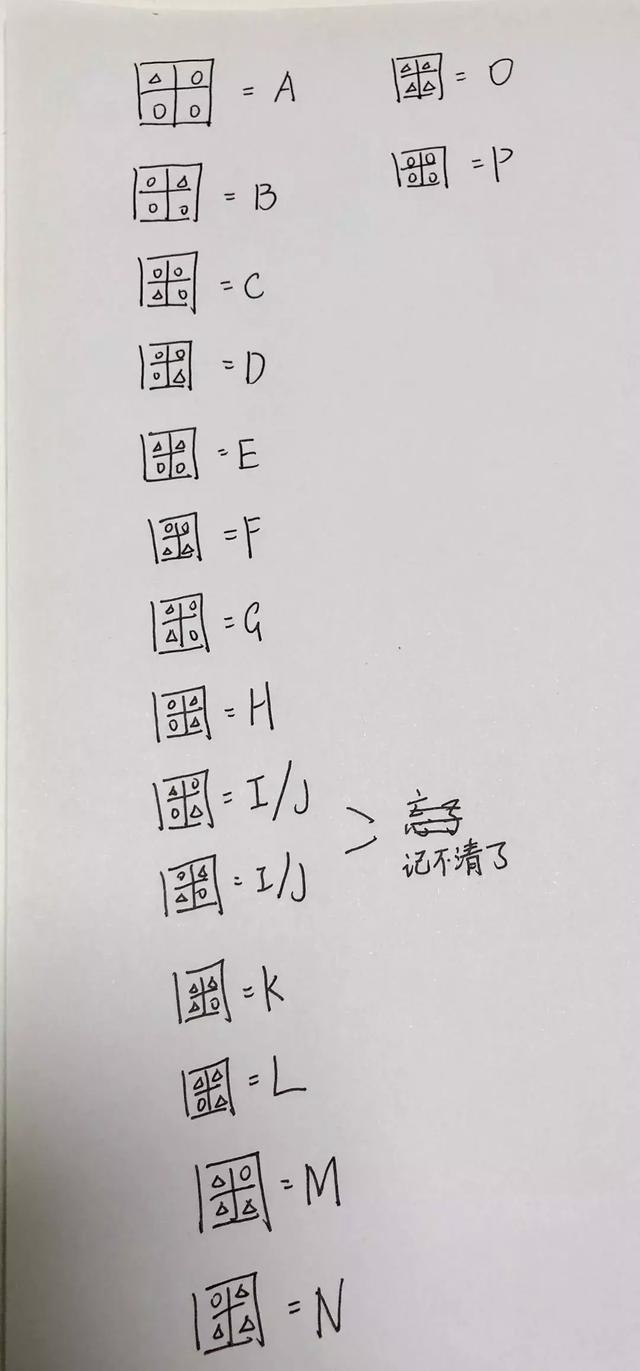 = A
= B
= C
= D
= E
= F
= G
= H
= I/J
= I/J
记不清了
= K
= L
= M
= N
= O
= P